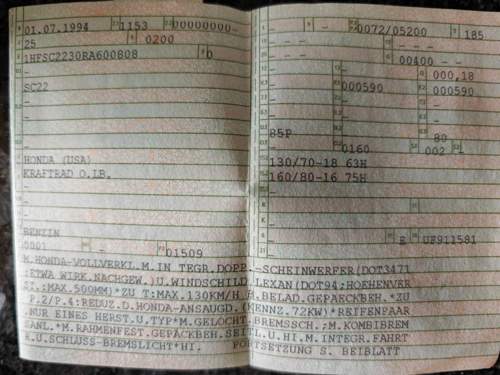 01.07.1994 1153 00000000-
25 0200
1HFSC2230RA600808 0
-
SC22
-
-
HONDA (USA)
KRAFTRAD O.LB.
-
-
BENZIN
0001 - 01509
- - 0072/05200 185
- - -
- - - 00400 - -
- 000,18
000590 000590
- -
85P 80
0160 002 -
130/70-18 63H
160/80-16 75H
-
E UF911581
M.HONDA-VOLLVERKL.M.IN TEGR.DOPP.-SCHEINWERFER(DOT3471
;ETWA WIRK.NACHGEW.)U.WINDSCHILD LEXAN(DOT94;HOEHENVER
ST.:MAX.500MM)*ZU T:MAX.130KM/H M.BELAD.GEPAECKBEH.*ZU
P.2/P.4:REDUZ.D.HONDA-ANSAUGD.(KENNZ.72KW)*REIFENPAAR
NUR EINES HERST.U.TYP*M.GELOCHT.BREMSSCH.;M.KOMBIBREM
SANL.*M.RAHMENFEST.GEPÄCKBEH.SEITL.U.HI.M.INTEGR.FAHRT
R.U.SCHLUSS-BREMSLICHT*HI. FORTSETZUNG S. BEIBLATT